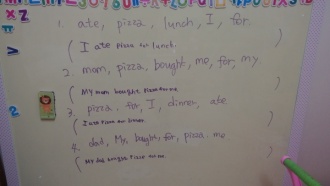 1. ate, pizza, lunch, I, for.
( I ate pizza for lunch. )
2. mom, pizza, bought, me, for, my
( My mom bought pizza for me. )
3. pizza. for, I, dinner, ate
( I ate pizza for dinner. )
4. dad, My, bought, for, pizza. me
( My dad bought pizza for me. )